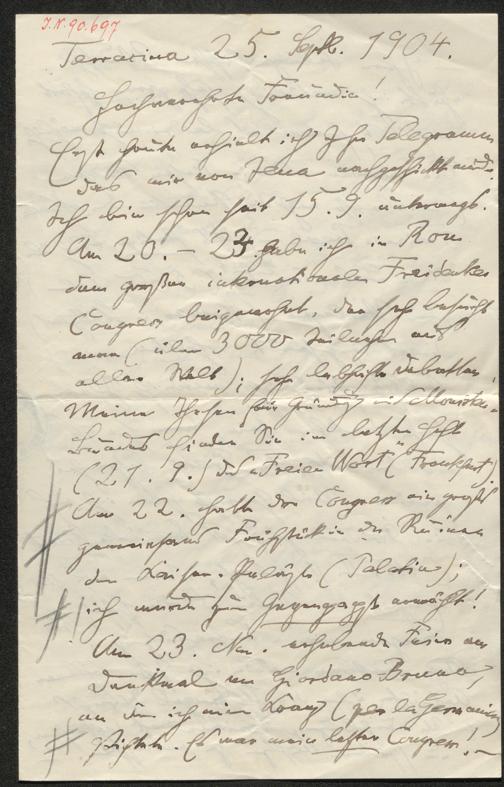 J.N. 90.697
Terracina 25. Sept. 1904.
Hochverehrte Freundin!
Erst heute erhielt ich Ihr Telegramm
das mir von Jena nachgeschickt wird.
Ich bin schon seit 15. 9. unterwegs.
Am 20. – 23. habe ich in Rom
dem großen internationalen Freidenker
Congress beigewohnt, der sehr besucht
war (über 3000 Teilnehmer aus
aller Welt); sehr lebhafte Debatten.
Meine Thesen für Gründung eines Monisten-
bundes finden Sie im letzten Heft
(21. 9.) des „Freien Wort“ (Frankfurt).
Am 22. hatte der Congress ein großes
gemeinsames Frühstück in den Ruinen
der Kaiser-Paläste (Palatin);
ich wurde zum Gegenpapst erwählt!
Am 23. Nm. erhebende Feier am
Denkmal von Giordano Bruno,
an dem ich einen Kranz (per la Germania)
stiftete. Es war mein letzter Congress! –